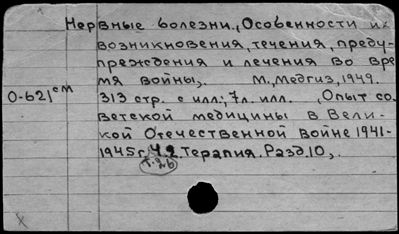 Нервные болезни., Особенности их
возникновения, течения, преду-
преждения и лечения во вре
мя войны,. М., Медгиз, 1949.
0-621 см 313 стр. с илл.; 7л. илл. , Опыт со.
ветской медицины в Вели-
кой Отечественной войне 1941-
1945г, 4.2. Терапия. Разд. 10,.
т. 26